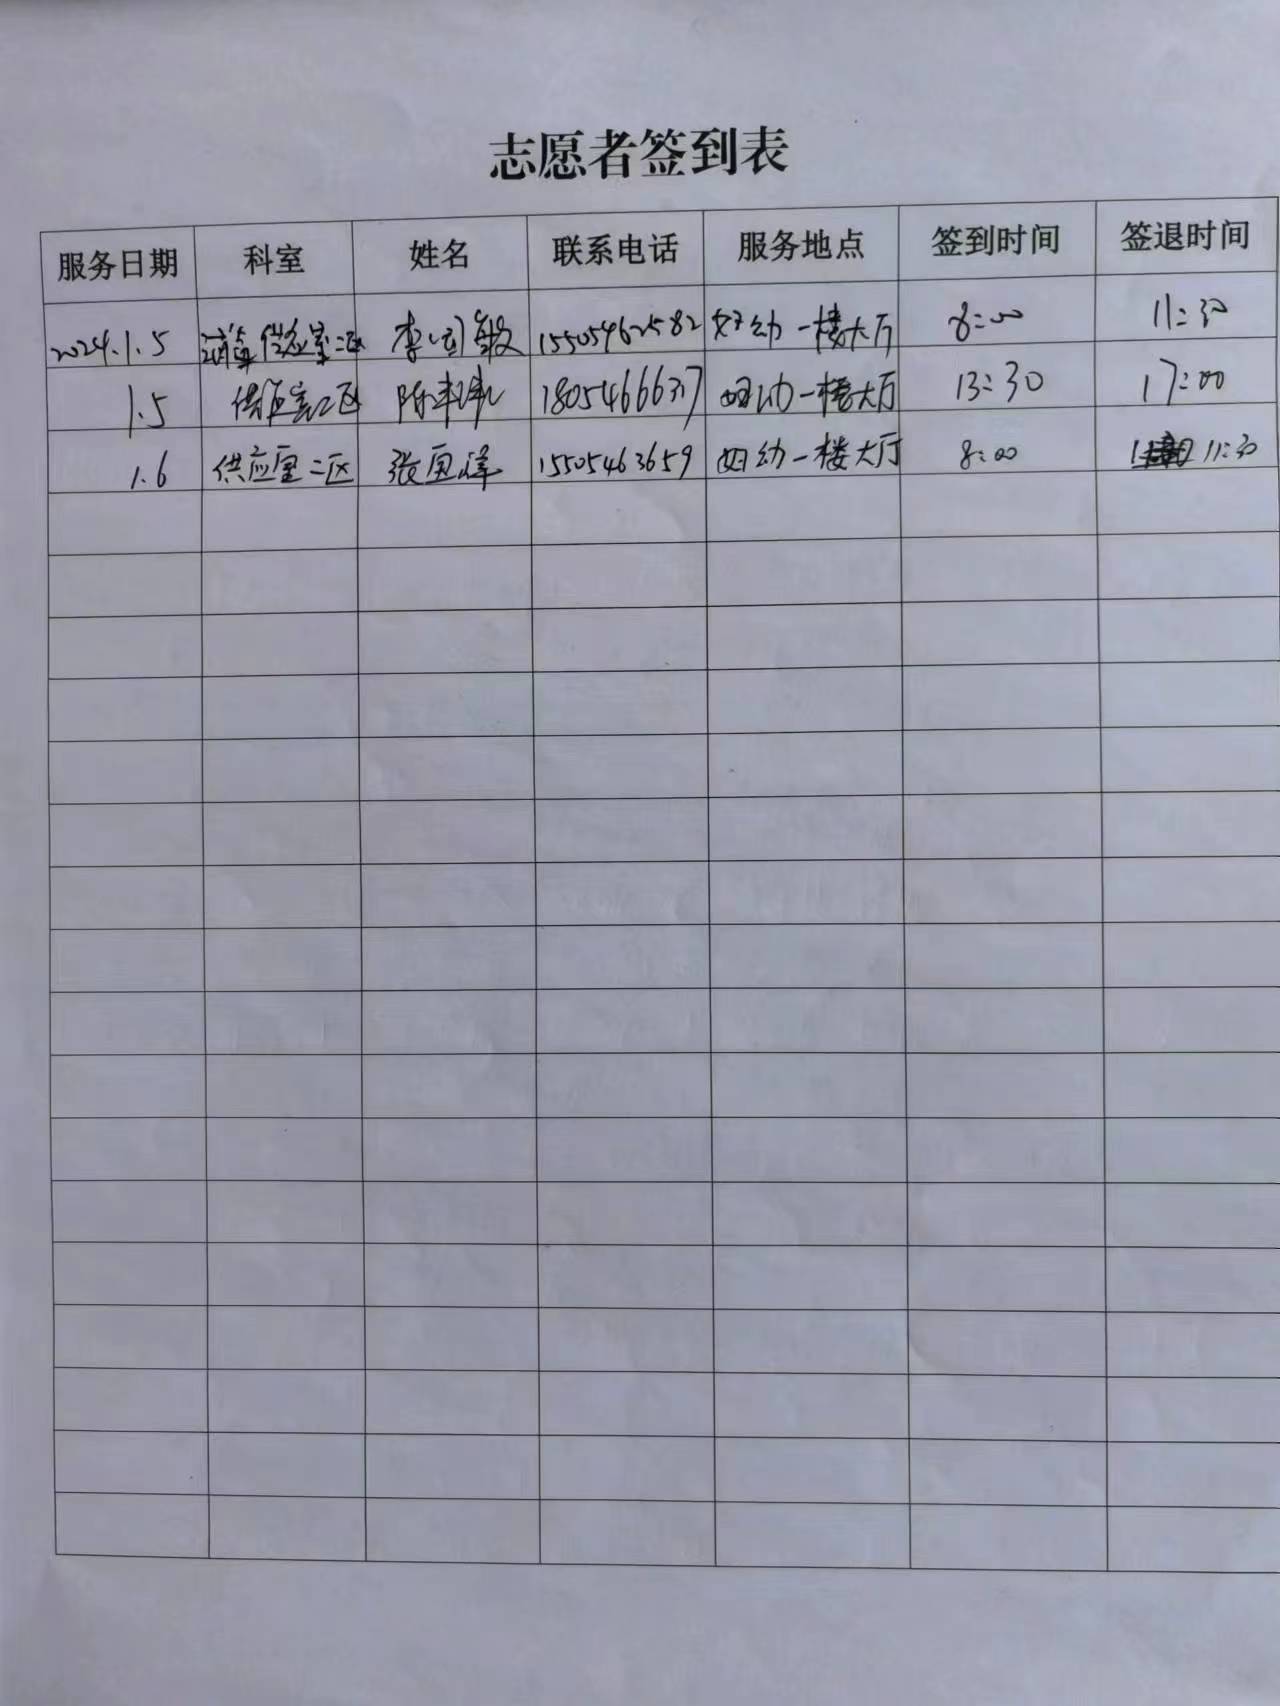 志愿者签到表
服务日期 科室 姓名 联系电话 服务地点 签到时间 签退时间
2024.1.5 消毒供应室二区 李 敏 15505462582 妇幼一楼大厅 8:00 11:30
1.5 供应室二区 陈 18054666317 妇幼一楼大厅 13:30 17:00
1.6 供应室二区 张 峰 15505463659 妇幼一楼大厅 8:00 11:30